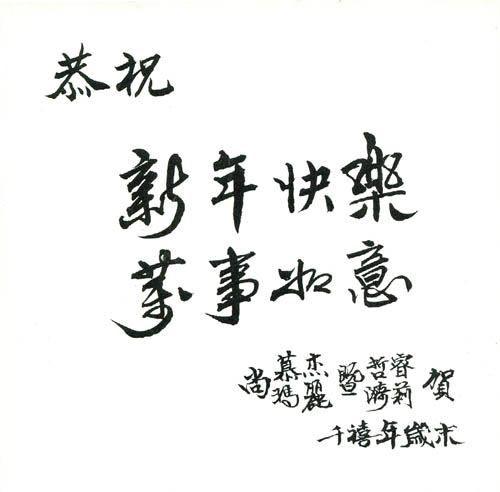 恭祝
新年快樂
萬事如意
尚慕杰 瑪麗 暨 哲睿 濤莉 賀
千禧年歲末